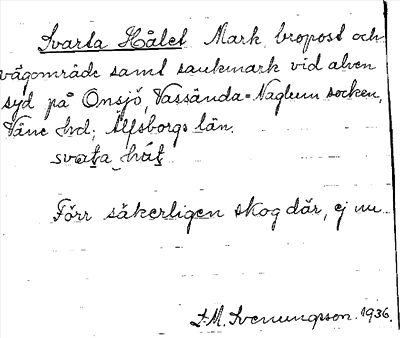 Svarta Hålet Mark, bropost och
vägområde samt sankmark vid älven
syd på Onsjö, Vassända-Naglum socken,
Väne hd; Älfsborgs län.
Förr säkerligen skog där, ej nu.
1936.